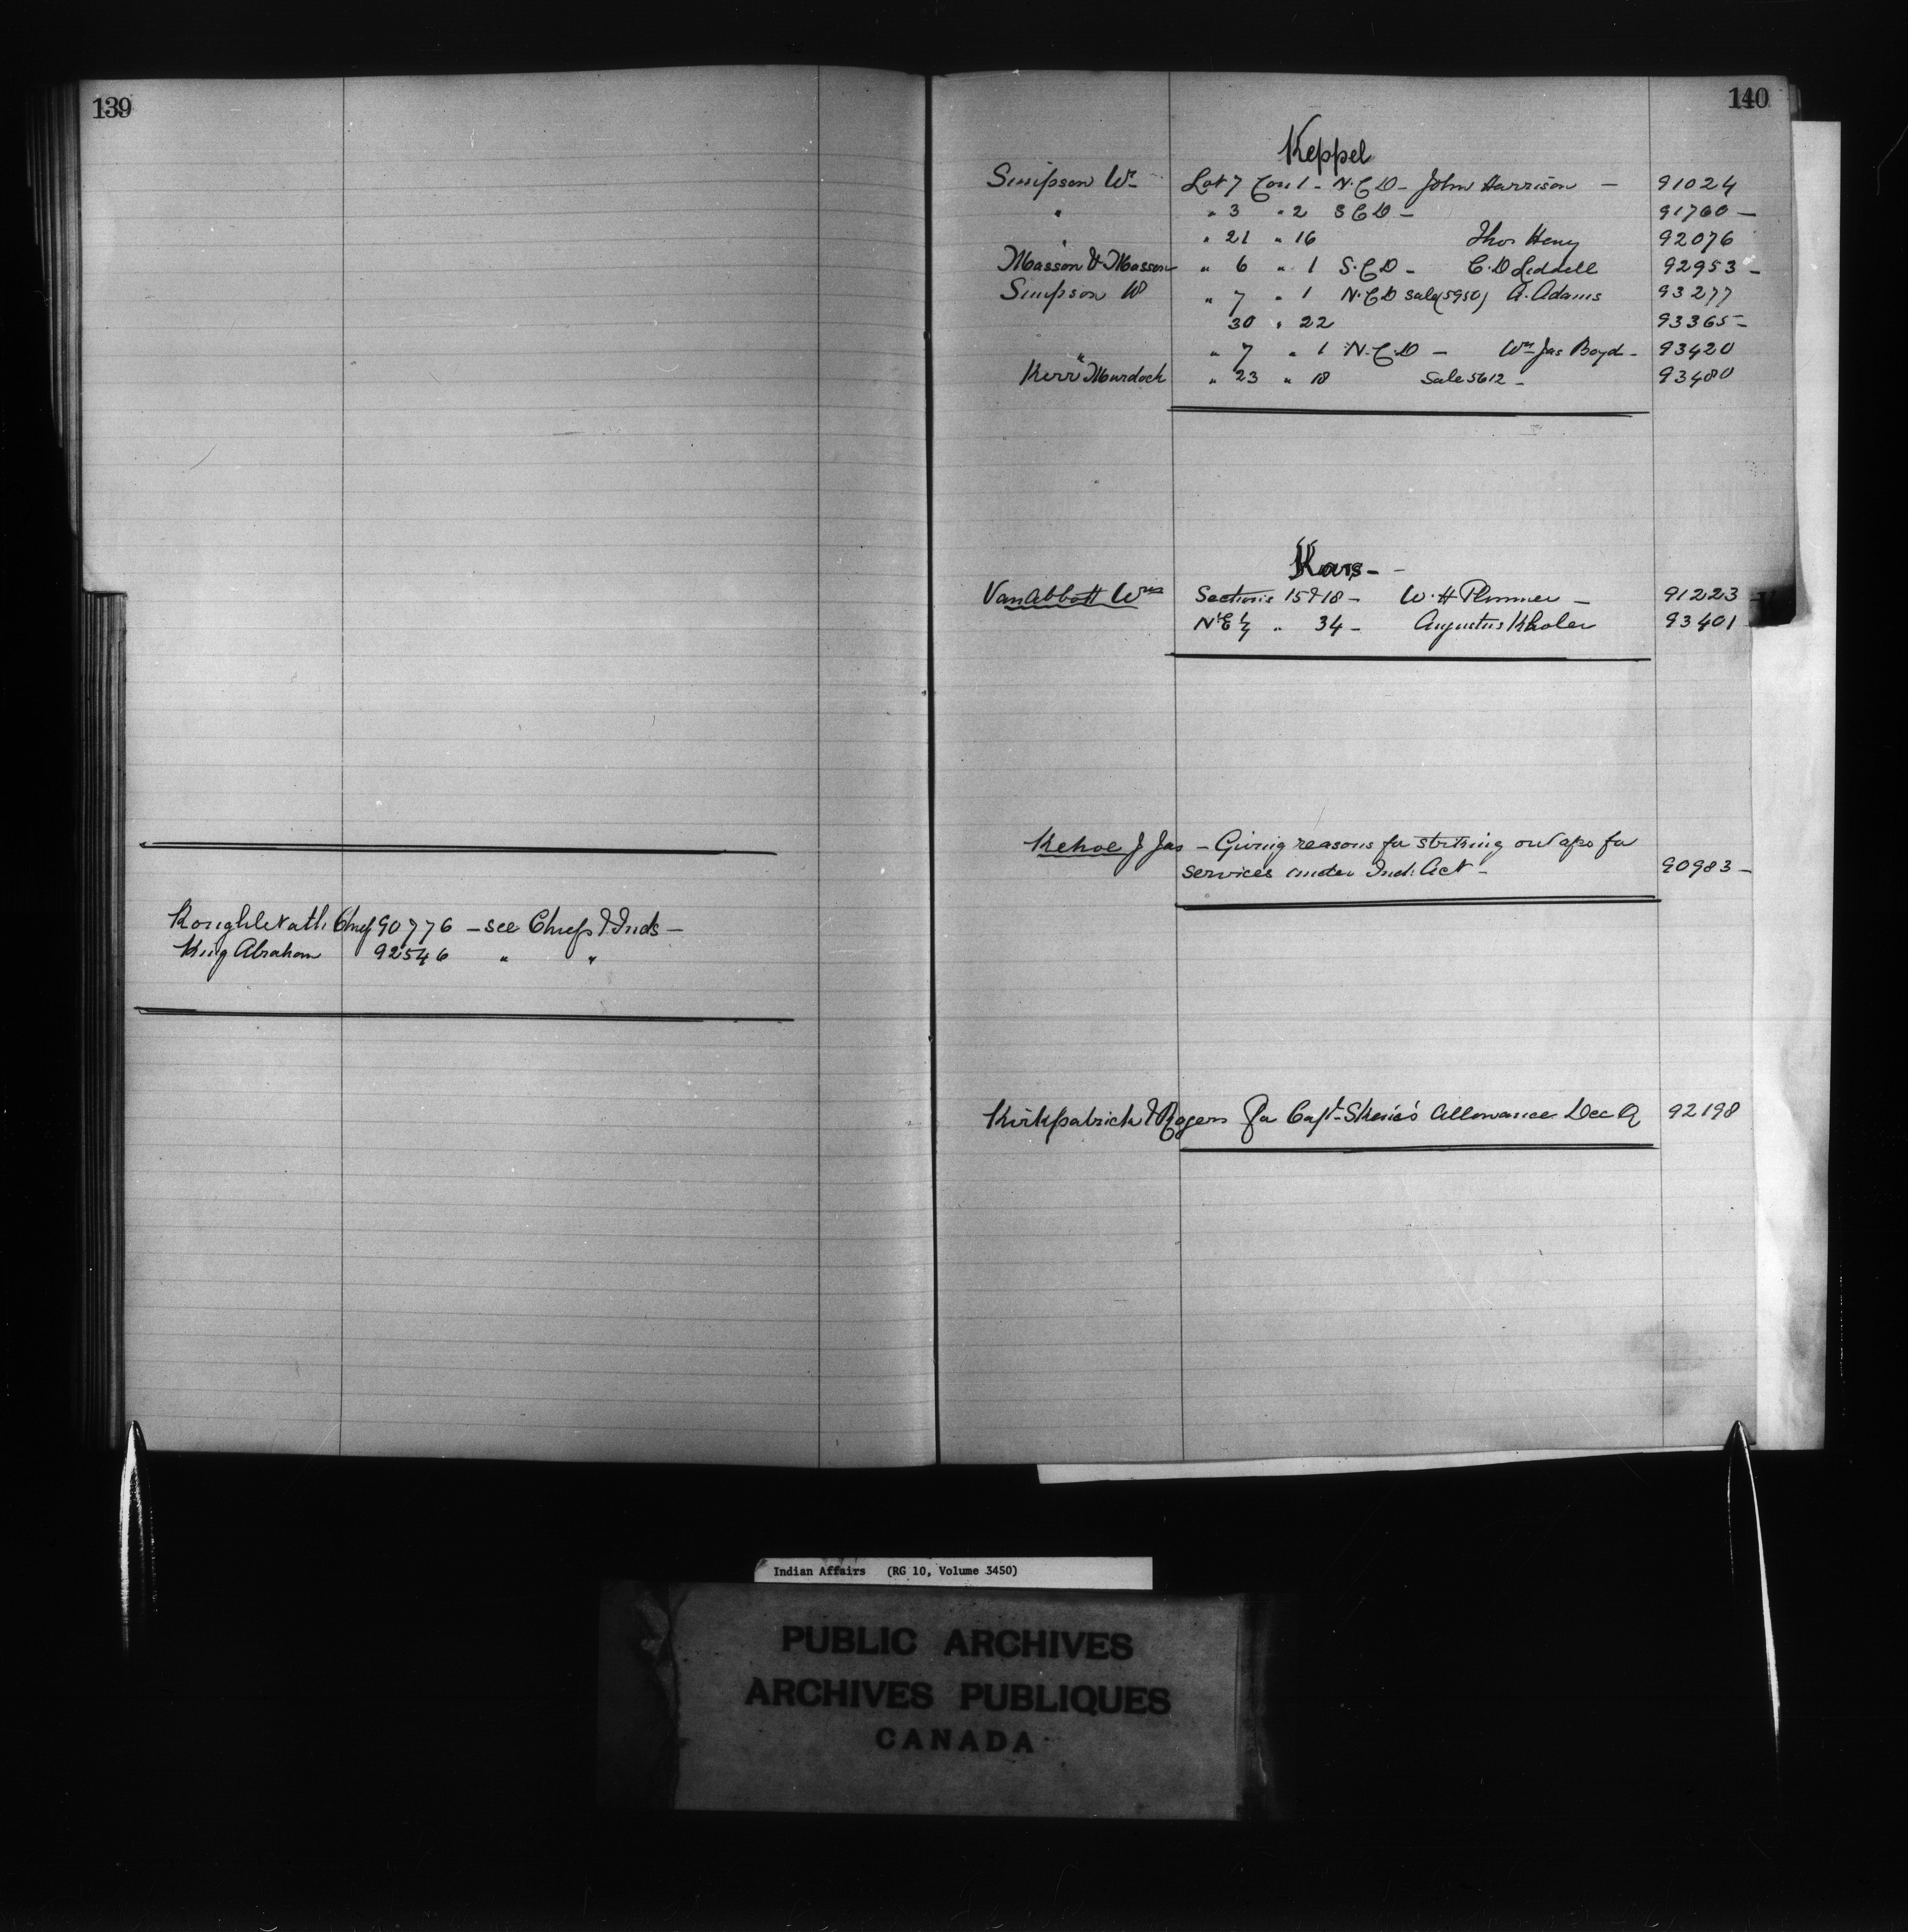 139
KoughleNath Chief 90776 – see Chiefs & Inds –
King Abraham 92546 " "
140
Keppel
Simpson Wm Lot 7 Con 1 – N.C.D – John Harrison – 91024
" " 3 " 2 S C D – 91760 –
" " 21 " 16 Thos Heny 92076
Masson & Masson " 6 " 1 S.C.D – C.D Liddell 92953 –
Simpson W " 7 " 1 N.C.D Sale (5950) A. Adams 93277
30 " 22 93365 –
" " 7 " 1 N.C.D – Wm Jas Boyd – 93420
Kerr Murdock " 23 " 18 Sale 5612 – 93480
Kars –
VanAbbott Wm Sections 15 & 18 – W. H Plummer – 91223 –
N.E ¼ " 34 – Augustus Kholer 93401 –
Kehoe J Jas – Giving reasons for striking out a/c for
services under Ind. Act – 90983 –
Kirkpatrick & Rogers For Capt. Skene's Allowance Dec Q 92198
Indian Affairs (RG 10, Volume 3450)
PUBLIC ARCHIVES
ARCHIVES PUBLIQUES
CANADA